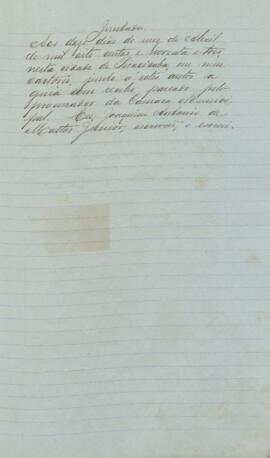 Juntada
Aos doze dias do mez de Abril
de mil oito centos e noventa e tres
nesta cidade de Piracicaba, em meu
cartorio, junto á estes autos a
guia com recibo passado pelo
procurador da Camara Munici-
pal. Eu, Joaquim Antonio de
Mattos Junior, escrivão, o escrevi.